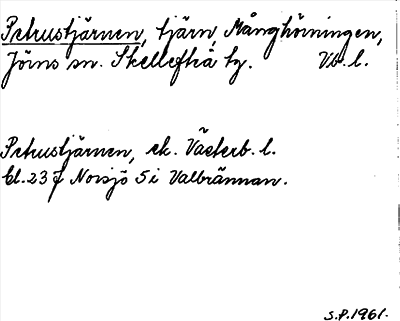 Petrustjärnen, tjärn, Månghörningen,
Jörns sn. Skellefteå tg. Vb. l.
Petrustjärnen, ek. Västerb. l.
bl. 23 J Norsjö 5 i Valbrännan.
S.P. 1961.